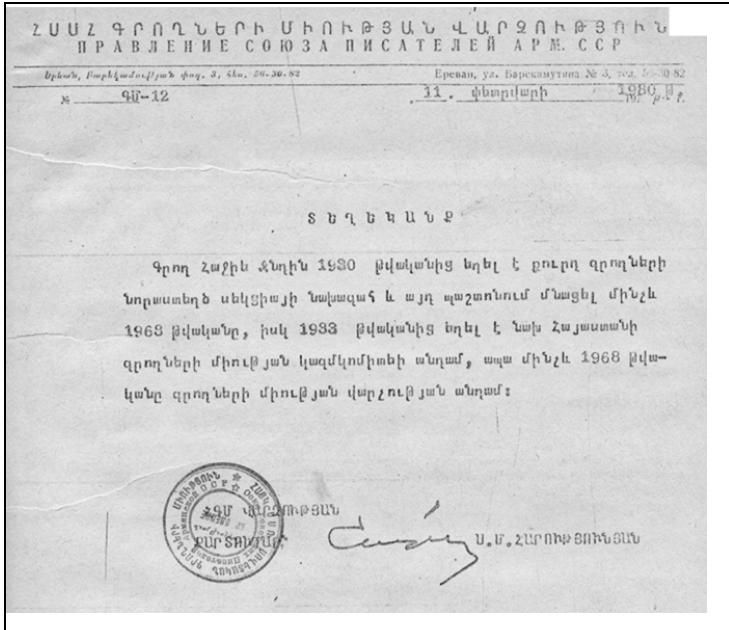 ՀՍՍՀ ԳՐՈՂՆԵՐԻ ՄԻՈՒԹՅԱՆ ՎԱՐՉՈՒԹՅՈՒՆ
ПРАВЛЕНИЕ СОЮЗА ПИСАТЕЛЕЙ АРМ. ССР
Երևան, Բարեկամության փող. 3, հեռ. 56-30-82 Ереван, ул. Барекамутяна № 3, тел. 56-30-82
№ ԳՄ-12 11. փետրվարի 1980 թ.
ՏԵՂԵԿԱՆՔ
Գրող Հաջիե Ջնդին 1930 թվականից եղել է քուրդ գրողների
նորաստեղծ սեկցիայի նախագահ և այդ պաշտոնում մնացել մինչև
1968 թվականը, իսկ 1933 թվականից եղել է նախ Հայաստանի
գրողների միության կազմկոմիտեի անդամ, ապա մինչև 1968 թվա-
կանը գրողների միության վարչության անդամ:
ՀԳՄ ՎԱՐՉՈՒԹՅԱՆ
ՔԱՐՏՈՒՂԱՐ Ս.Մ.ՀԱՐՈՒԹՅՈՒՆՅԱՆ